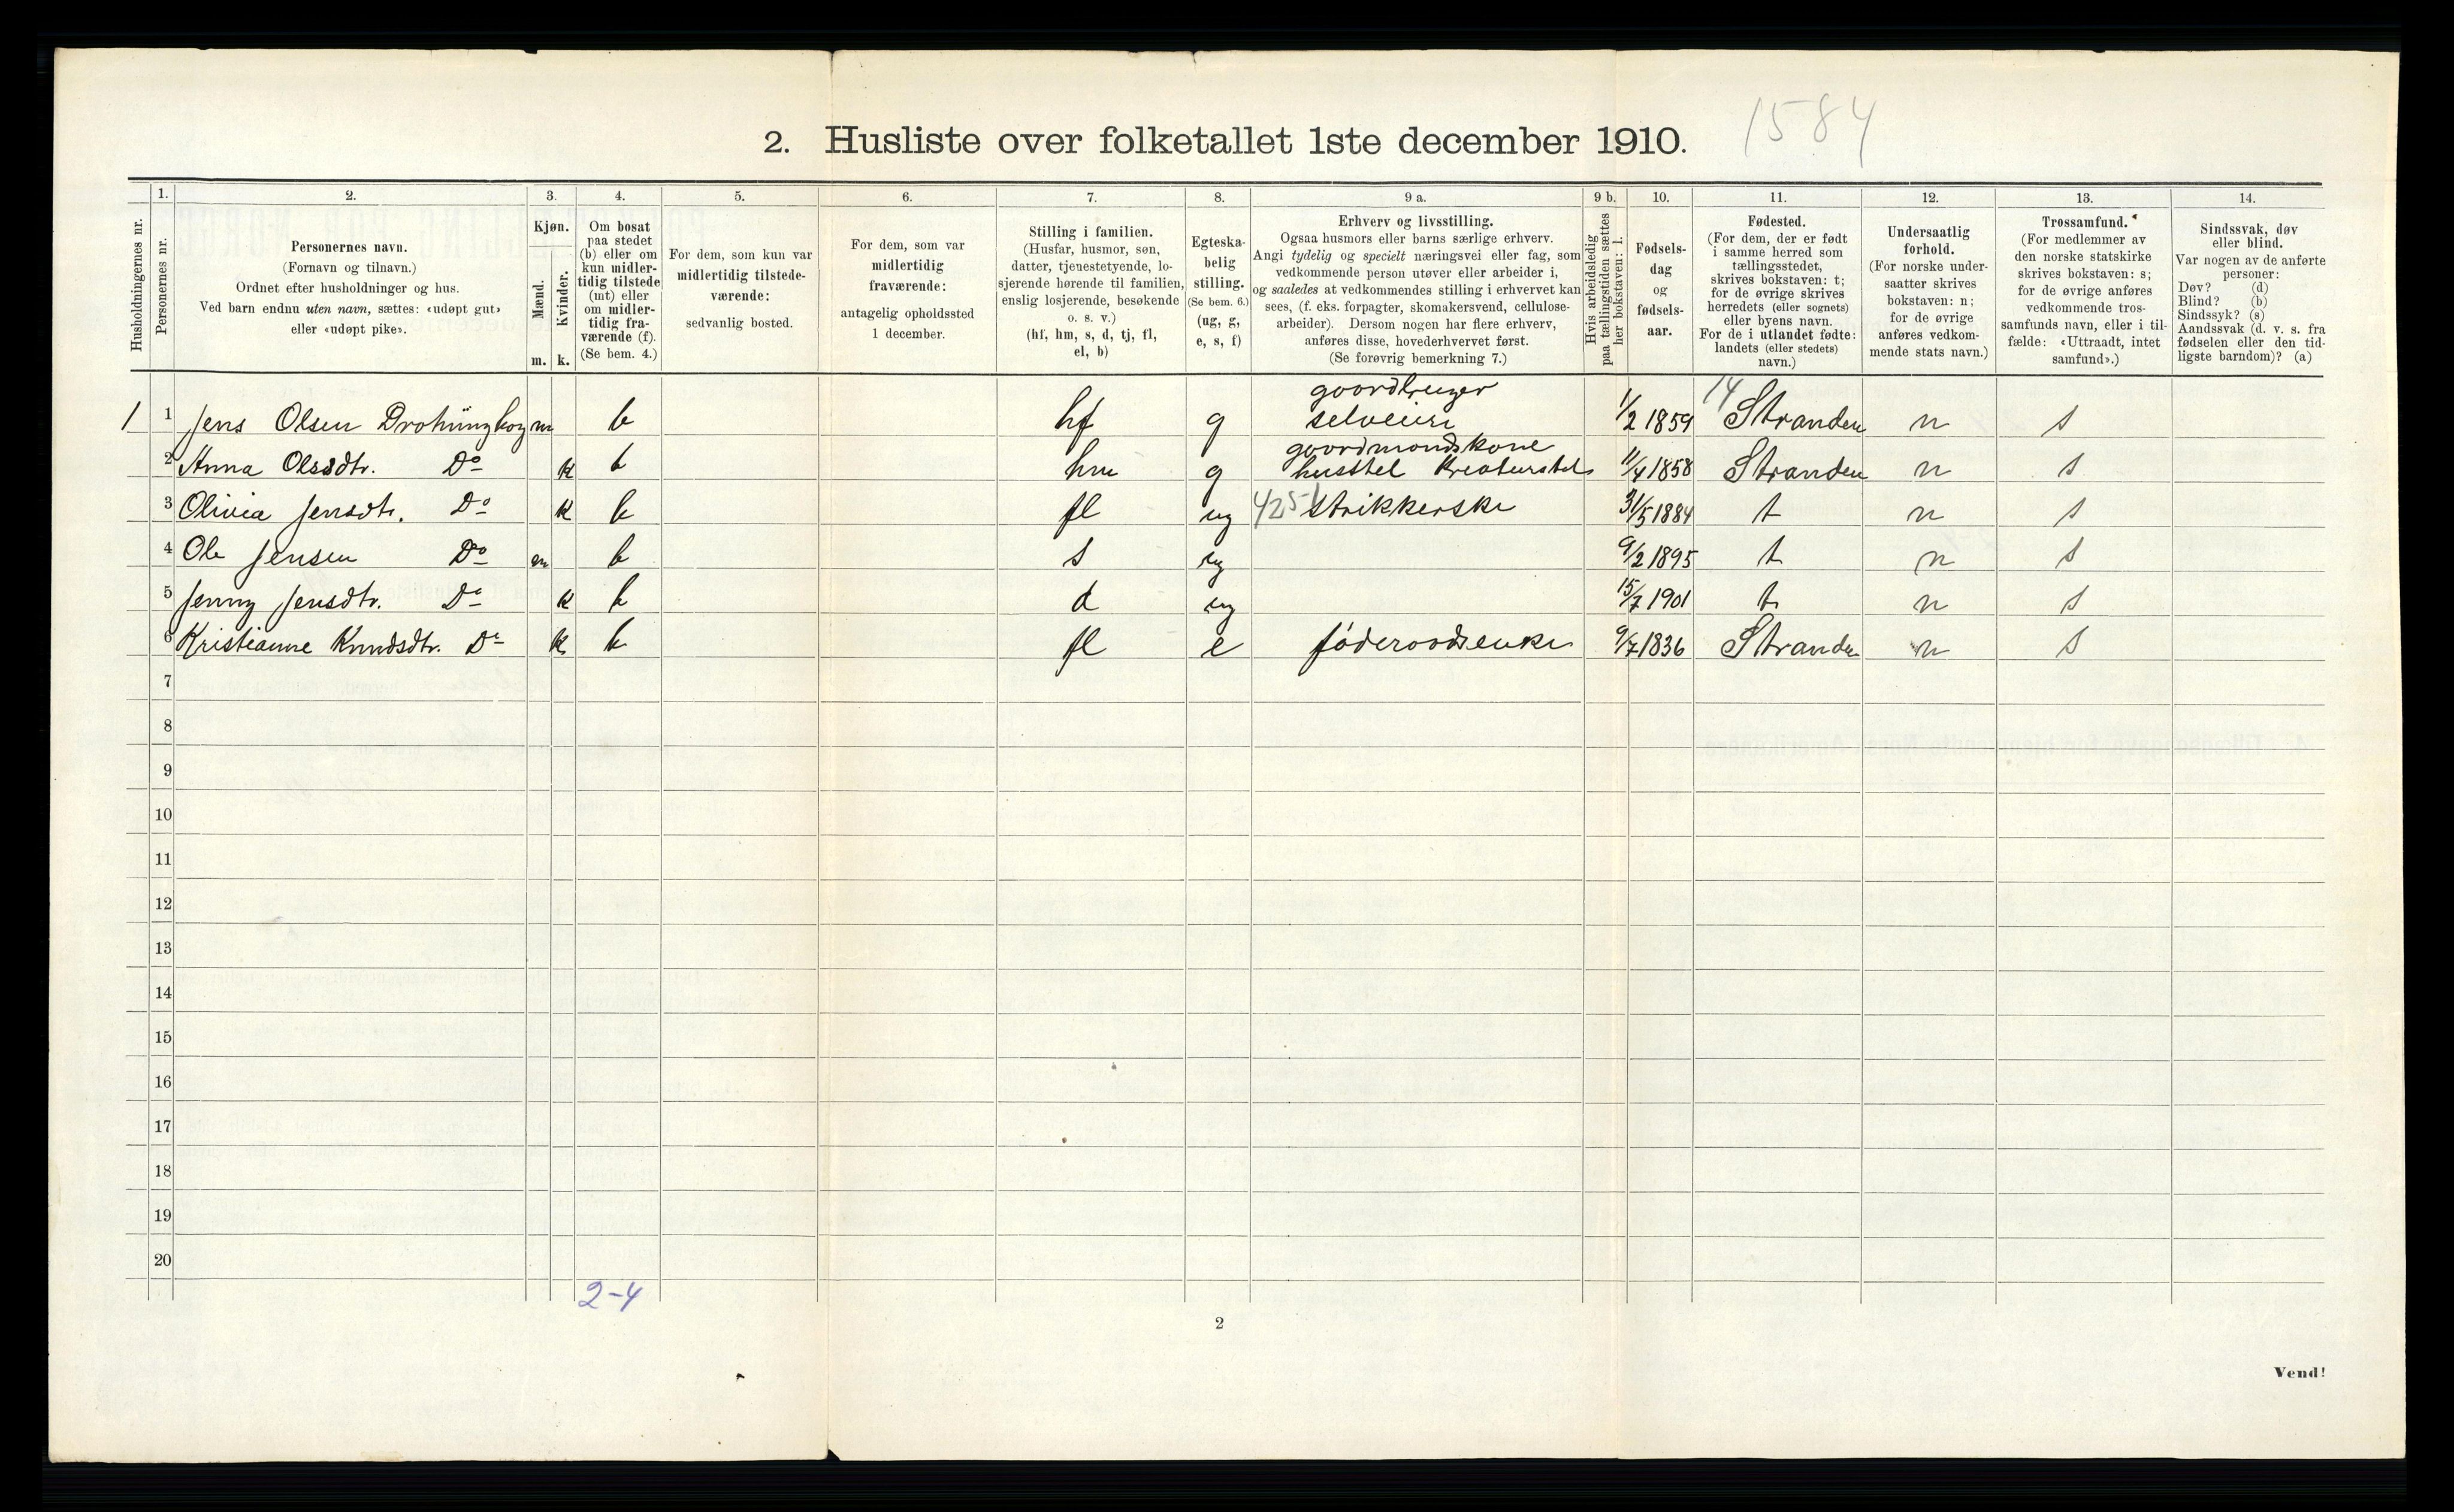 2. Husliste over folketallet 1ste december 1910. 1584
1. 2. 3. 4. 5. 6. 7. 8. 9 a. 9 b. 10. 11. 12. 13. 14.
Husholdningernes nr.
Personernes nr.
Personernes navn.
(Fornavn og tilnavn.)
Ordnet efter husholdninger og hus.
Ved barn endnu uten navn, sættes: «udøpt gut»
eller «udøpt pike».
Kjøn.
Mænd.
Kvinder.
m. k.
Om bosat
paa stedet
(b) eller om
kun midler-
tidig tilstede
(mt) eller
om midler-
tidig fra-
værende (f).
(Se bem. 4.)
For dem, som kun var
midlertidig tilstede-
værende:
sedvanlig bosted.
For dem, som var
midlertidig
fraværende:
antagelig opholdssted
1 december.
Stilling i familien.
(Husfar, husmor, søn,
datter, tjenestetyende, lo-
sjerende hørende til familien,
enslig losjerende, besøkende
o. s. v.)
(hf, hm, s, d, tj, fl,
el, b)
Egteska-
belig
stilling.
(Se bem. 6.)
(ug, g,
e, s, f)
Erhverv og livsstilling.
Ogsaa husmors eller barns særlige erhverv.
Angi tydelig og specielt næringsvei eller fag, som
vedkommende person utøver eller arbeider i,
og saaledes at vedkommendes stilling i erhvervet kan
sees, (f. eks. forpagter, skomakersvend, cellulose-
arbeider). Dersom nogen har flere erhverv,
anføres disse, hovederhvervet først.
(Se forøvrig bemerkning 7.)
Hvis arbeidsledig
paa tællingstiden sættes
her bokstaven: l.
Fødsels-
dag
og
fødsels-
aar.
Fødested.
(For dem, der er født
i samme herred som
tællingsstedet,
skrives bokstaven: t;
for de øvrige skrives
herredets (eller sognets)
eller byens navn.
For de i utlandet fødte:
landets (eller stedets)
navn.)
Undersaatlig
forhold.
(For norske under-
saatter skrives
bokstaven: n;
for de øvrige
anføres vedkom-
mende stats navn.)
Trossamfund.
(For medlemmer av
den norske statskirke
skrives bokstaven: s;
for de øvrige anføres
vedkommende tros-
samfunds navn, eller i til-
fælde: «Uttraadt, intet
samfund».)
Sindssvak, døv
eller blind.
Var nogen av de anførte
personer:
Døv? (d)
Blind? (b)
Sindssyk? (s)
Aandssvak (d. v. s. fra
fødselen eller den tid-
ligste barndom)? (a)
gaardbruger 14
1 1 Jens Olsen m b hf g selveier 1/2 1859 Stranden n s
gaardmandskone
2 Anna Olsdtr. Do k b hm g husstel Kreaturstel 11/4 1858 Stranden n s
3 Olivia Jensdtr. Do k b fl ug 425 strikkerske 31/5 1884 t n s
4 Ole Jensen Do m b s ug 9/2 1895 t n s
5 Jenny Jensdtr. Do k b d ug 15/7 1901 t n s
6 Kristianne Knudsdtr. Do k b fl e føderaadsenke 9/7 1836 Stranden n s
7
8
9
10
11
12
13
14
15
16
17
18
19
20
2-4
2
Vend!